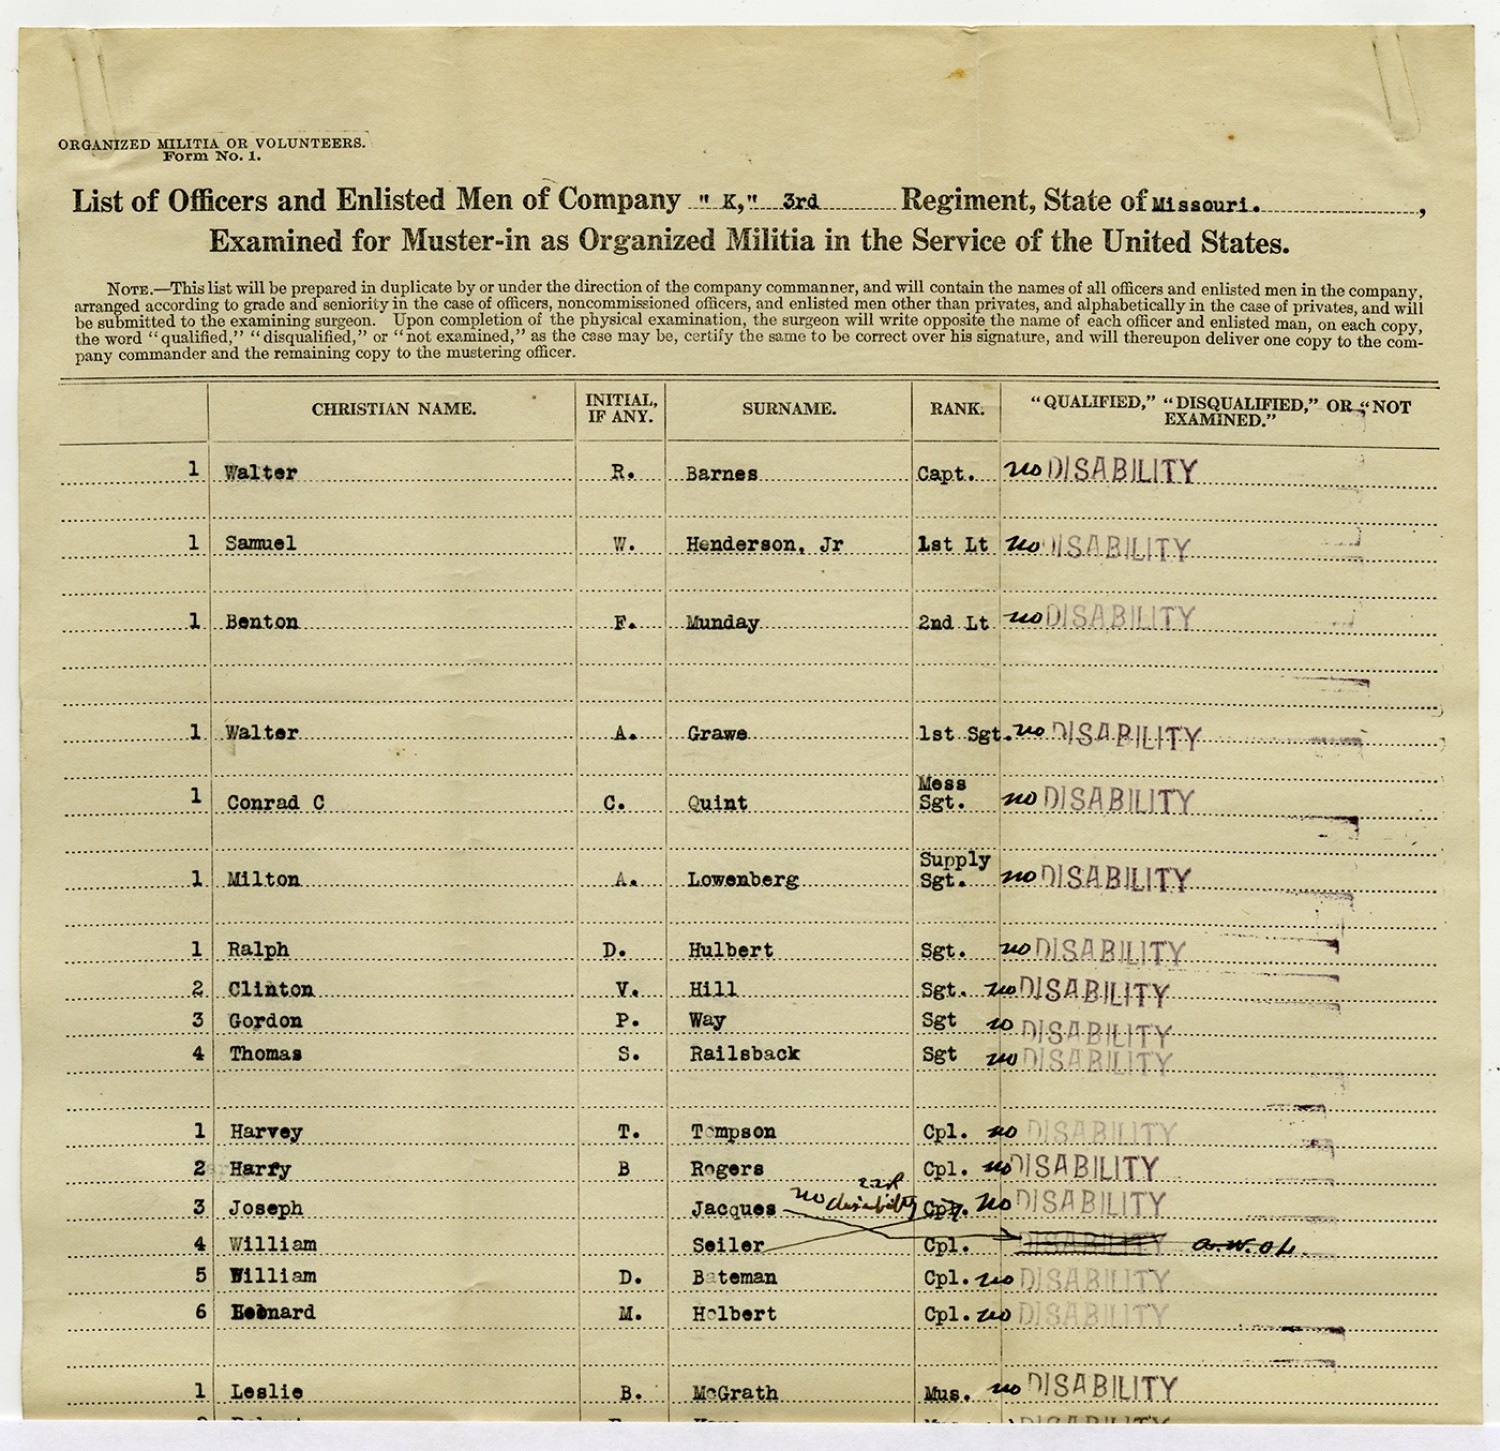 ORGANIZED MILITIA OR VOLUNTEERS.
Form No. 1.
List of Officers and Enlisted Men of Company "K," 3rd Regiment, State of Missouri.,
Examined for Muster-in as Organized Militia in the Service of the United States.
NOTE.—This list will be prepared in duplicate by or under the direction of the company commanner, and will contain the names of all officers and enlisted men in the company,
arranged according to grade and seniority in the case of officers, noncommissioned officers, and enlisted men other than privates, and alphabetically in the case of privates, and will
be submitted to the examining surgeon. Upon completion of the physical examination, the surgeon will write opposite the name of each officer and enlisted man, on each copy,
the word "qualified," "disqualified," or "not examined," as the case may be, certify the same to be correct over his signature, and will thereupon deliver one copy to the com-
pany commander and the remaining copy to the mustering officer.
CHRISTIAN NAME. INITIAL, IF ANY. SURNAME. RANK. "QUALIFIED," "DISQUALIFIED," OR "NOT EXAMINED."
1 Walter R. Barnes Capt. no DISABILITY
1 Samuel W. Henderson, Jr 1st Lt no DISABILITY
1 Benton F. Munday 2nd Lt no DISABILITY
1 Walter A. Grawe 1st Sgt. no DISABILITY
1 Conrad C C. Quint Mess Sgt. no DISABILITY
1 Milton A. Lowenberg Supply Sgt. no DISABILITY
1 Ralph D. Hulbert Sgt. no DISABILITY
2 Clinton V. Hill Sgt. no DISABILITY
3 Gordon P. Way Sgt no DISABILITY
4 Thomas S. Railsback Sgt no DISABILITY
1 Harvey T. Tompson Cpl. no DISABILITY
2 Harry B Rogers Cpl. no DISABILITY
3 Joseph Jacques no disability Cpl. no DISABILITY
4 William Seiler Cpl. DISABILITY a.w.o.L.
5 William D. Bateman Cpl. no DISABILITY
6 Leonard M. Holbert Cpl. no DISABILITY
1 Leslie B. McGrath Mus. no DISABILITY